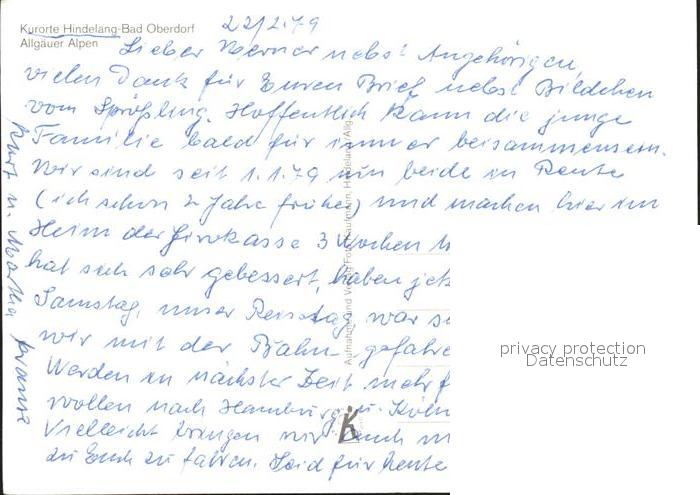 Kurorte Hindelang-Bad Oberdorf
Allgäuer Alpen
22/2.79
Lieber Werner nebst Angehörigen,
vielen Dank für Euren Brief nebst Bildchen
vom Sprößling. Hoffentlich kann die junge
Familie bald für immer beisammensein.
Wir sind seit 1.1.79 nun beide in Rente
(ich schon 2 Jahre früher) und machen hier im
Heim der 3 Wochen
hat sich sehr gebessert, haben jet
Samstag, unser Reisetag war s
wir mit der Bahn gefahre
Werden in nächster Zeit mehr f
wollen nach Hamburg u. Köln
Vielleicht bringen wir auch m
zu Euch zu fahren. Seid für heute
Kurt u. Martha
Aufnahme und Verlag Foto Kaufmann, Hindelang/Allg.
privacy protection
Datenschutz